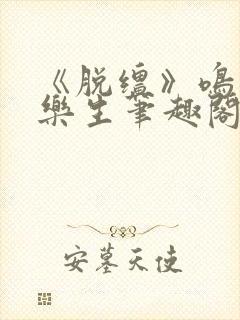 《脱缰》鸣
樂生筆趣閣
安墓天使